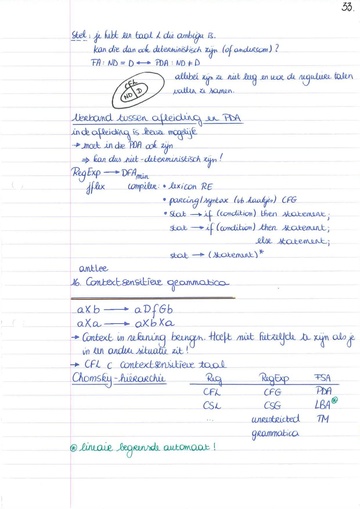 33.
Stel: je hebt een taal L die ambigu is.
kan die dan ook deterministisch zijn (of andersom)?
FA: ND = D ⟷ PDA: ND ≠ D
CFL
ND D
allebei zijn ze niet leeg en voor de reguliere talen
vallen ze samen.
Verband tussen afleiding en PDA
in de afleiding is keuze mogelijk
→ moet in de PDA ook zijn
⇒ kan dus niet-deterministisch zijn!
RegExp → DFA min
jflex compiler: • lexicon RE
• parsing/syntax (vb haakjes) CFG
• stat → if (condition) then statement;
stat → if (condition) then statement;
else statement;
stat → (statement)*
antlr
16. Contextsensitieve grammatica
aXb → aDfGb
aXa → aXbXa
→ Context in rekening brengen. Hoeft niet hetzelfde te zijn als je
in een andere situatie zit!
→ CFL ⊂ contextsensitieve taal
Chomsky-hiërarchie Reg RegExp FSA
CFL CFG PDA
CSL CSG LBA⊛
... unrestricted TM
grammatica
⊛ lineair begrensde automaat!